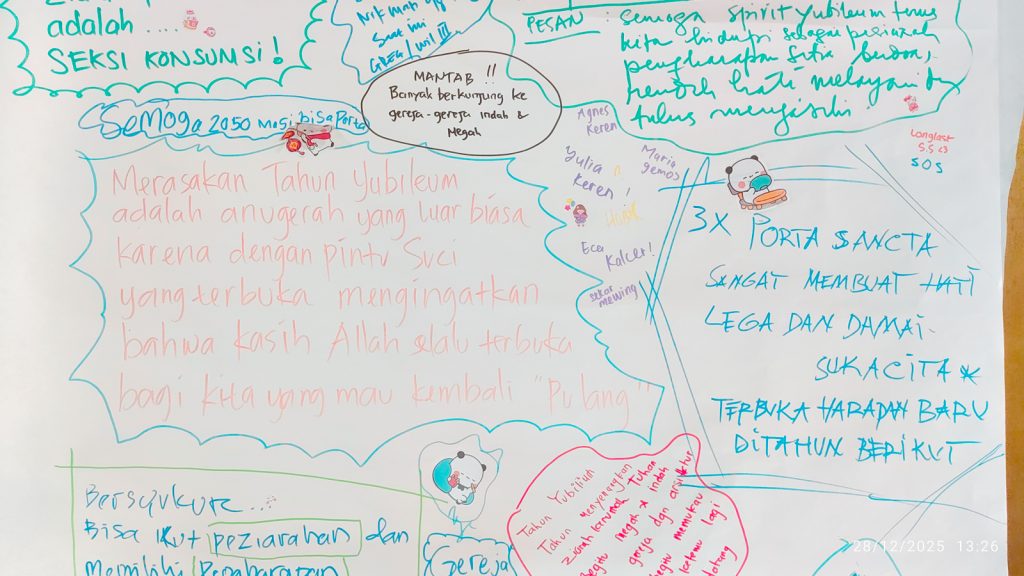 adalah ....
SEKSI KONSUMSI!
Nikmat
Saat ini
PESAN : Semoga Spirit Yubileum terus
kita hidupi sebagai peziarah
pengharapan Setia berdoa,
rendah hati melayani
tulus mengasihi
MANTAB !!
Banyak berkunjung ke
gereja-gereja indah &
Megah
Semoga 2050 Masi bisa Porta
Agnes
Keren
Maria
gemos
Yulia
Keren !
Ece
Kalcer!
Sekar
mewing
Longlast
S.S <3
SOS
Merasakan Tahun Yubileum
adalah anugerah yang luar biasa
karena dengan pintu Suci
yang terbuka mengingatkan
bahwa kasih Allah selalu terbuka
bagi kita yang mau kembali "Pulang"
3X PORTA SANCTA
SANGAT MEMBUAT HATI
LEGA DAN DAMAI.
SUKACITA *
TERBUKA HARAPAN BARU
DITAHUN BERIKUT
Bersyukur...
Bisa ikut peziarahan dan
Memiliki Pengharapan
Gereja
Tahun Yubilium
Tahun menyenangkan
ziarah kerumah Tuhan
begitu megah & indah
gereja dgn arsitektur
begitu memukau
ketemu lagi
datang
28/12/2025 13:26